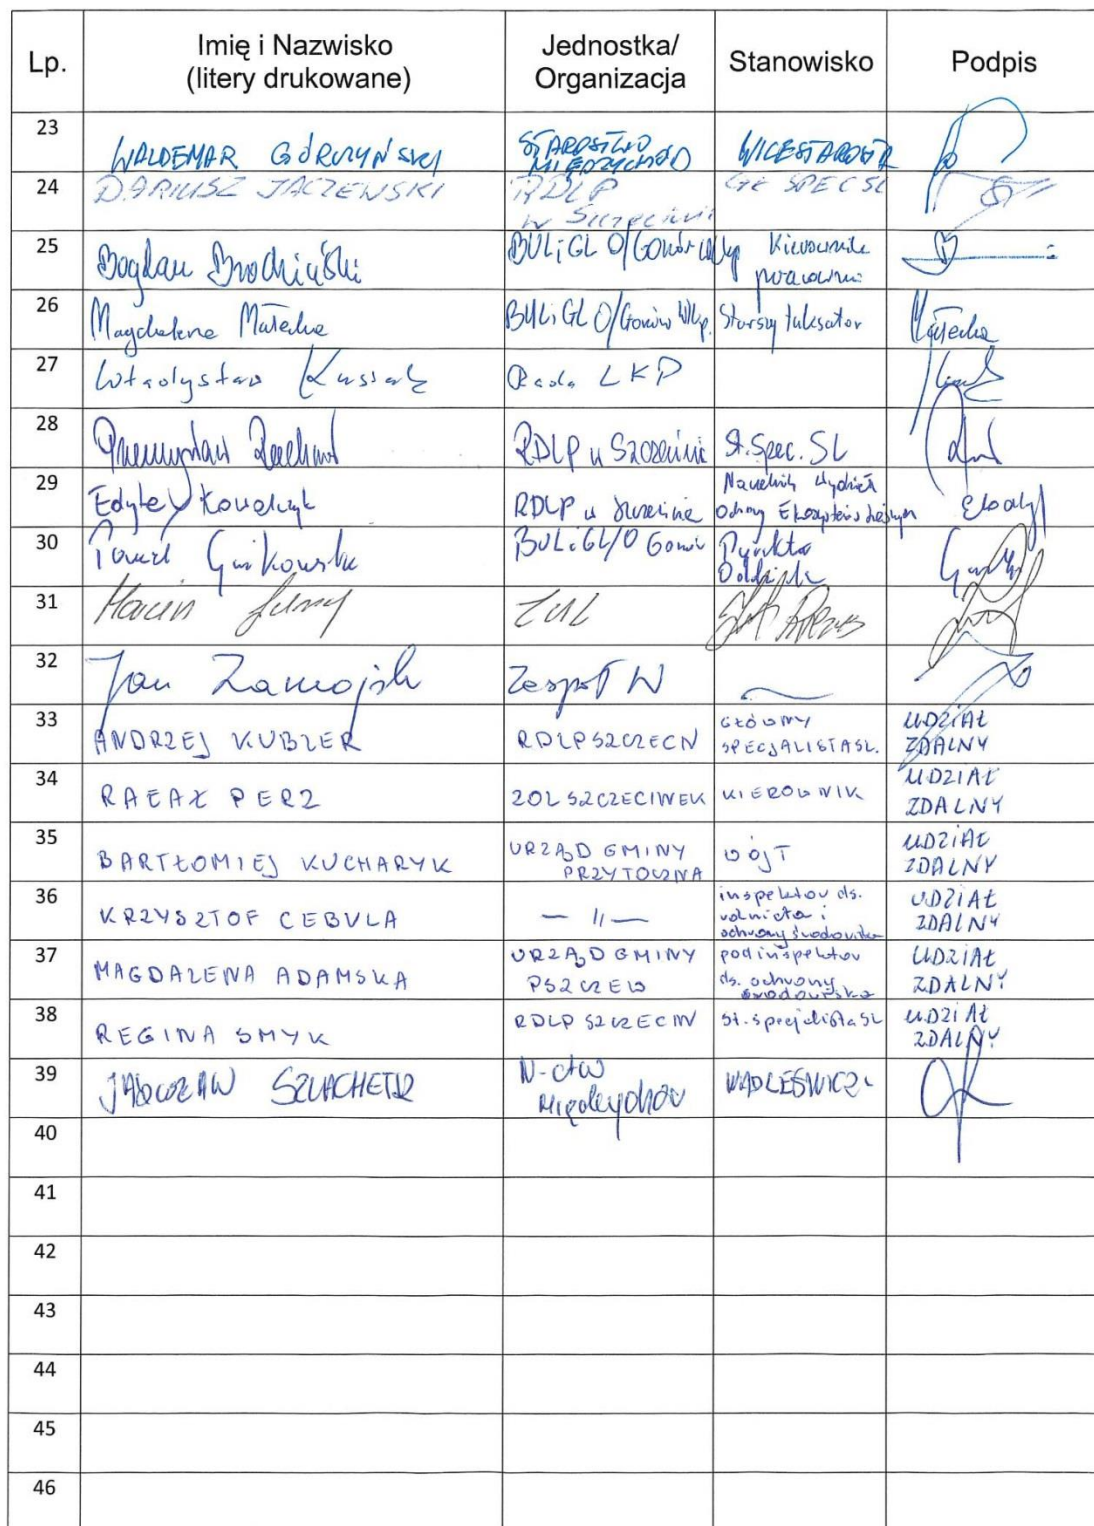 Lp.
Imię i Nazwisko
(litery drukowane)
Jednostka/
Organizacja
Stanowisko
Podpis
23
WALDEMAR GÓRCZYŃSKI
STAROSTWO
MIĘDZYCHÓD
WICESTAROSTA
24
DARIUSZ JACZEWSKI
RDLP
w Szczecinie
GŁ SPEC SL
25
Bogdan
BULiGL O/Gorzów Wlkp
Kierownik
pracowni
26
Magdalena Małecka
BULiGL O/Gorzów Wlkp.
Starszy taksator
Małecka
27
Władysław
Rada LKP
28
Przemysław
RDLP w Szczecinie
St. Spec. SL
29
Edyta Kowalczyk
RDLP w Szczecinie
Naczelnik Wydziału
Ochrony Ekosystemów Leśnych
30
Paweł
BULiGL/O Gorzów
31
Marcin
ZUL
32
Jan Zamojski
Zespół W
33
ANDRZEJ KUBZER
RDLP SZCZECN
GŁÓWNY
SPECJALISTA SL.
UDZIAŁ
ZDALNY
34
RAFAŁ PERZ
ZOL SZCZECINEK
KIEROWNIK
UDZIAŁ
ZDALNY
35
BARTŁOMIEJ KUCHARYK
URZĄD GMINY
PRZYTOCZNA
WÓJT
UDZIAŁ
ZDALNY
36
KRZYSZTOF CEBULA
— II —
inspektor ds.
rolnictwa i
ochrony środowiska
UDZIAŁ
ZDALNY
37
MAGDALENA ADAMSKA
URZĄD GMINY
PSZCZEW
podinspektor
ds. ochrony
środowiska
UDZIAŁ
ZDALNY
38
REGINA SMYK
RDLP SZCZECIN
st. specjalista SL
UDZIAŁ
ZDALNY
39
JAROSŁAW SZLACHETKA
N-ctwo
Międzychód
NADLEŚNICZY
40
41
42
43
44
45
46